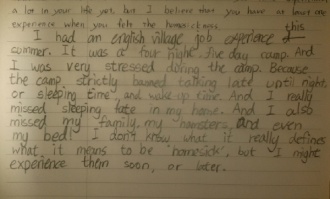 a lot in your life yet, but I believe that you have at least one
experience when you felt the homesickness.
I had an english village job experience this
sommer. It was a four night, five day camp. And
I was very stressed during the camp. Because
the camp strictly banned talking late until night,
or sleeping time, and wake-up time. And I really
missed sleeping late in my home. And I also
missed my family, my hamsters, and even
my bed! I don't know what it really defines
what it means to be 'homesick', but I might
experience them soon, or later.